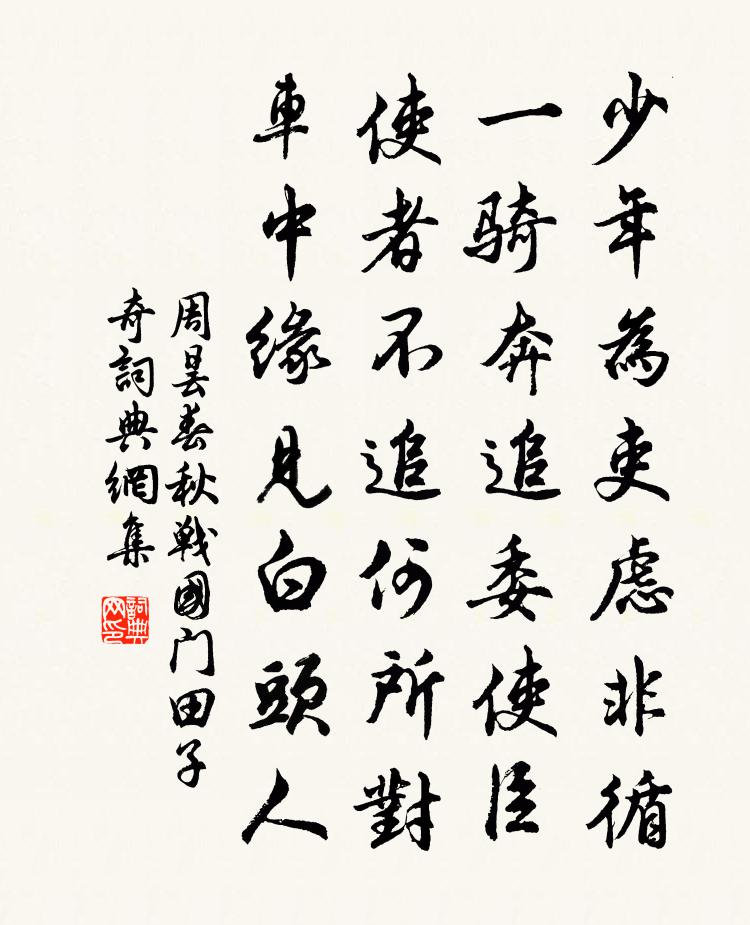 少年為吏慮非循
一騎奔追委使臣
使者不追何所對
車中緣見白頭人
周曇春秋戰國門田子
奇詞典網集
詞典网印